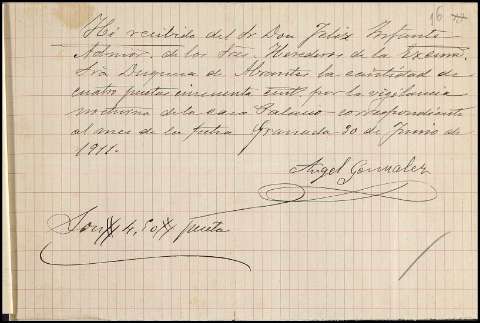 16
He recibido del Sr Don Felix Infante
Admor. de los Sres. Herederos de la Excma.
Sra Duquesa de Abrantes la cantidad de
cuatro pesetas cincuenta cent. por la vigilancia
nocturna de la casa Palacio correspondiente
al mes de la fecha Granada 30 de Junio de
1911.
Angel Gonzalez
Son 4,50 pesetas